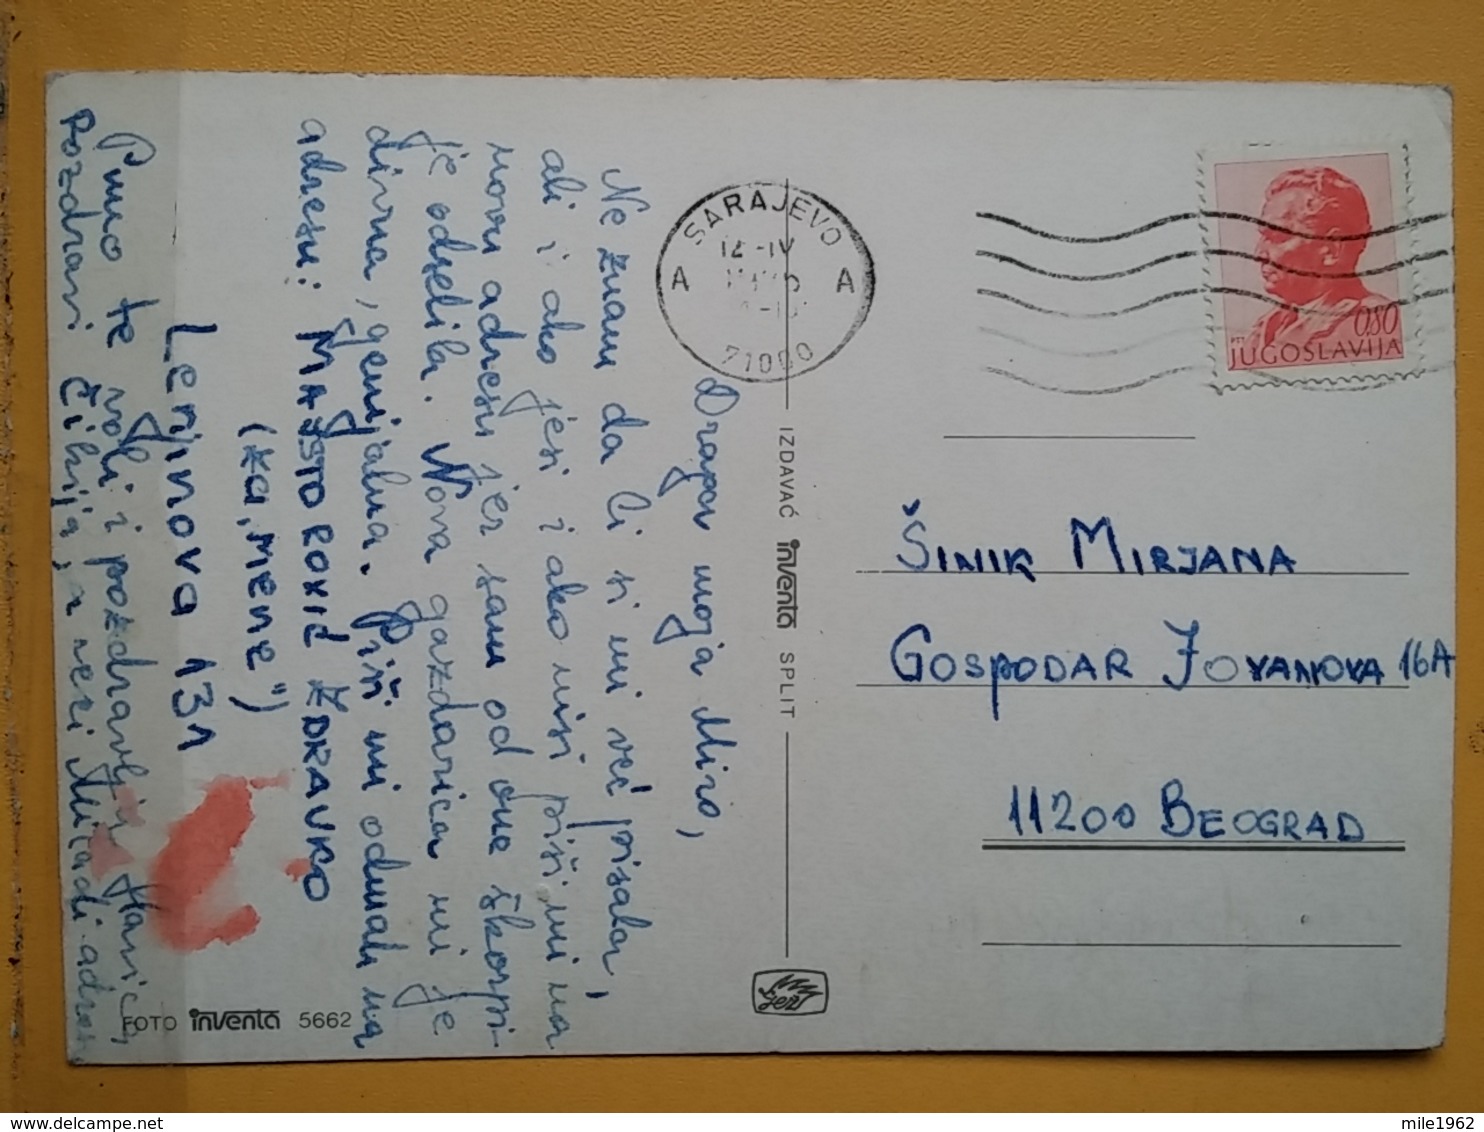 Draga moja Miro,
Ne znam da li si mi već pisala,
ali i ako jesi i ako nisi piši mi na
novu adresu jer sam od one škorpi-
je odselila. Nova gazdarica mi je
divna, genijalna. Piši mi odmah na
adresu: MAJSTOROVIĆ ZDRAVKO
(za „MENE")
Lenjinova 131
Puno te voli i pozdravlja
Pozdravi
SARAJEVO
12-IV
A A
71000
0,80
PTT
JUGOSLAVIJA
IZDAVAČ inventa SPLIT
ŠINIK MIRJANA
GOSPODAR JOVANOVA 16A
11200 BEOGRAD
FOTO inventa 5662
mile1962